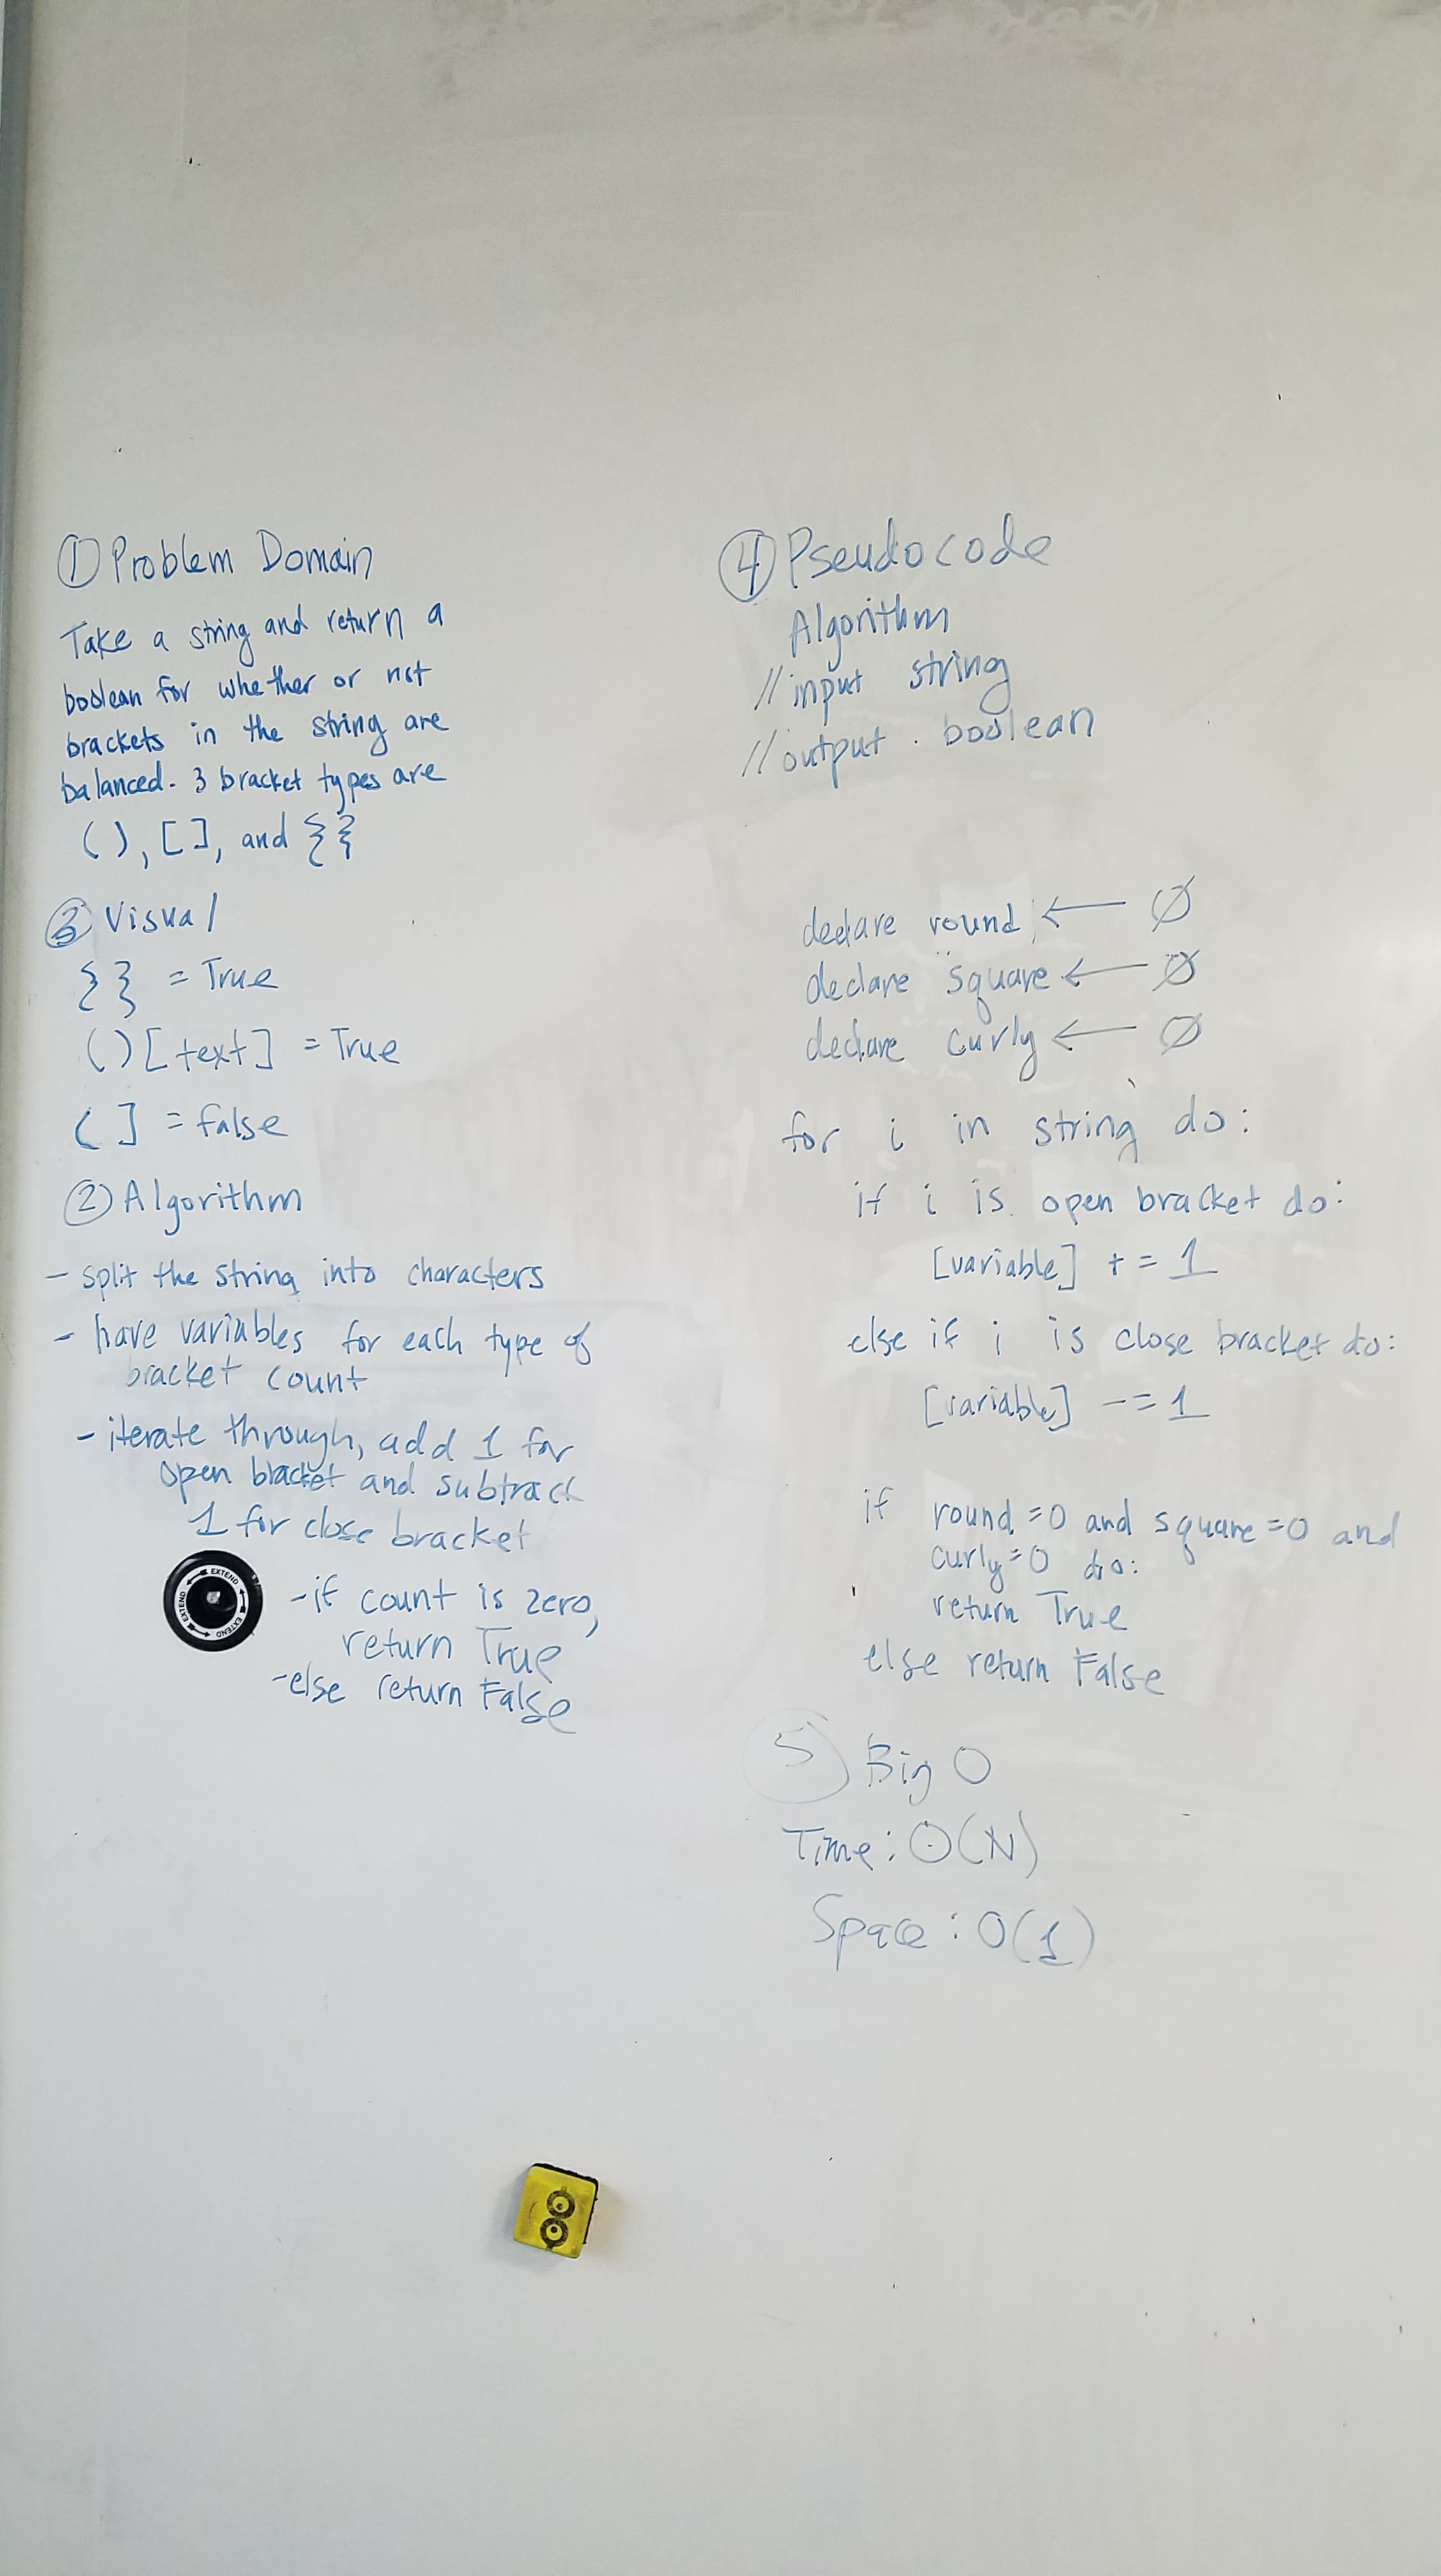 ① Problem Domain
Take a string and return a
boolean for whether or not
brackets in the string are
balanced. 3 bracket types are
(), [], and {}
③ Visual
{} = True
()[text] = True
(] = false
② Algorithm
- split the string into characters
- have variables for each type of
bracket count
- iterate through, add 1 for
open bracket and subtract
1 for close bracket
- if count is zero,
return True
- else return False
EXTEND EXTEND EXTEND EXTEND
④ Pseudocode
Algorithm
// input string
// output . boolean
declare round ← Ø
declare square ← Ø
declare curly ← Ø
for i in string do:
if i is open bracket do:
[variable] += 1
else if i is close bracket do:
[variable] -= 1
if round =0 and square =0 and
curly =0 do:
return True
else return False
⑤ Big O
Time: O(N)
Space: O(1)